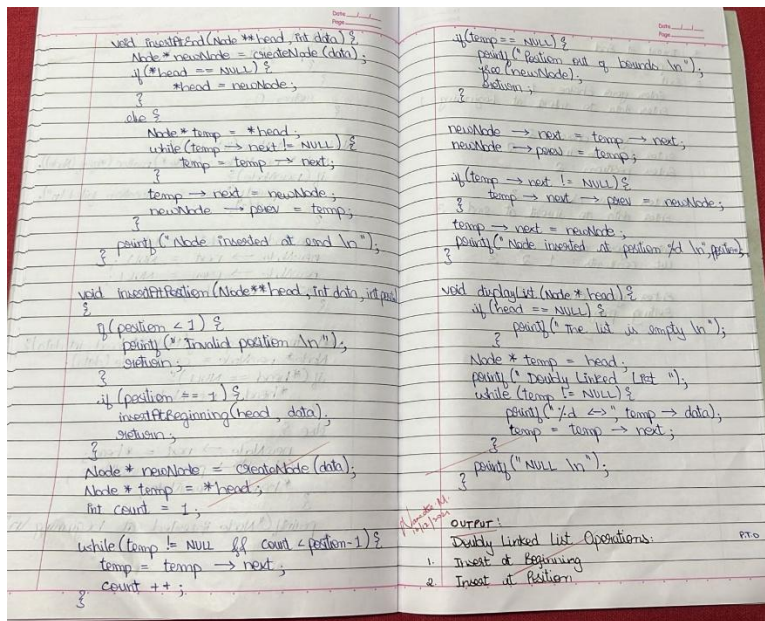 Date
Page
void insertAtEnd(Node **head, int data) {
Node* newNode = createNode(data);
if(*head == NULL) {
*head = newNode;
}
else {
Node* temp = *head;
while(temp → next != NULL) {
temp = temp → next;
}
temp → next = newNode;
newNode → prev = temp;
}
printf("Node inserted at end \n");
}
void insertAtPosition(Node** head, int data, int
{
if(position < 1) {
printf(" Invalid position \n");
return;
}
if(position == 1) {
insertAtBeginning(head, data);
return;
}
Node* newNode = createNode(data);
Node* temp = *head;
int count = 1;
while(temp != NULL && count < position-1) {
temp = temp → next;
count ++;
}
Date
Page
if(temp == NULL) {
printf("Position out of bounds \n");
free(newNode);
return;
}
newNode → next = temp → next;
newNode → prev = temp;
if(temp → next != NULL) {
temp → next → prev = newNode;
}
temp → next = newNode;
printf("Node inserted at position %d \n", position);
}
void displayList(Node* head) {
if(head == NULL) {
printf("The list is empty \n");
}
Node * temp = head;
printf(" Doubly Linked List ");
while (temp != NULL) {
printf("%d <->", temp → data);
temp = temp → next;
}
printf("NULL \n");
}
OUTPUT:
Doubly Linked List Operations:
P.T.O
1. Insert at Beginning
2. Insert at Position